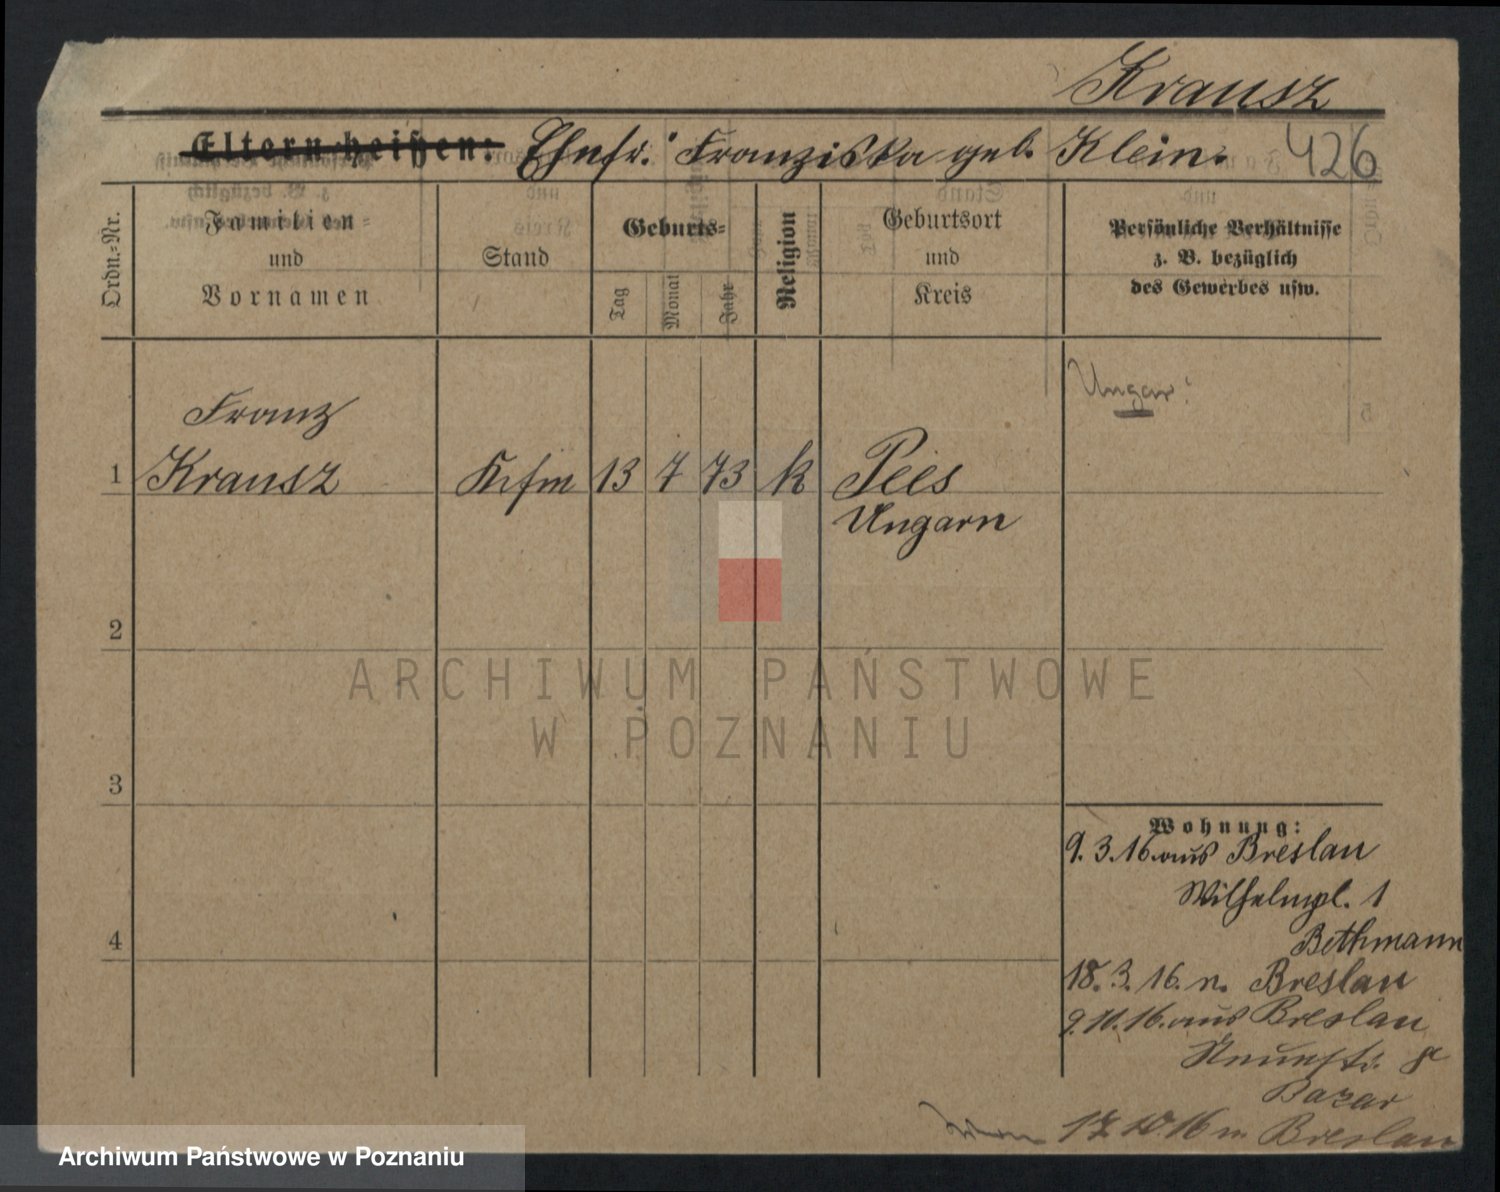 Krausz
Eltern heißen: Ehefr. Franziska geb. Klein.
426
Ordn.-Nr.
Familien
und
Vornamen
Stand
Geburts-
Tag
Monat
Jahr
Religion
Geburtsort
und
Kreis
Persönliche Verhältnisse
z. B. bezüglich
des Gewerbes usw.
Ungar!
Franz
1 Krausz Kfm 13 7 73 k Pees
Ungarn
2
3
4
Wohnung:
9.3.16. aus Breslau
Wilhelmpl. 1
Bethmann
18.3.16. n. Breslau
aus Breslau
Bazar
16 n. Breslau
ARCHIWUM PAŃSTWOWE
W POZNANIU
Archiwum Państwowe w Poznaniu